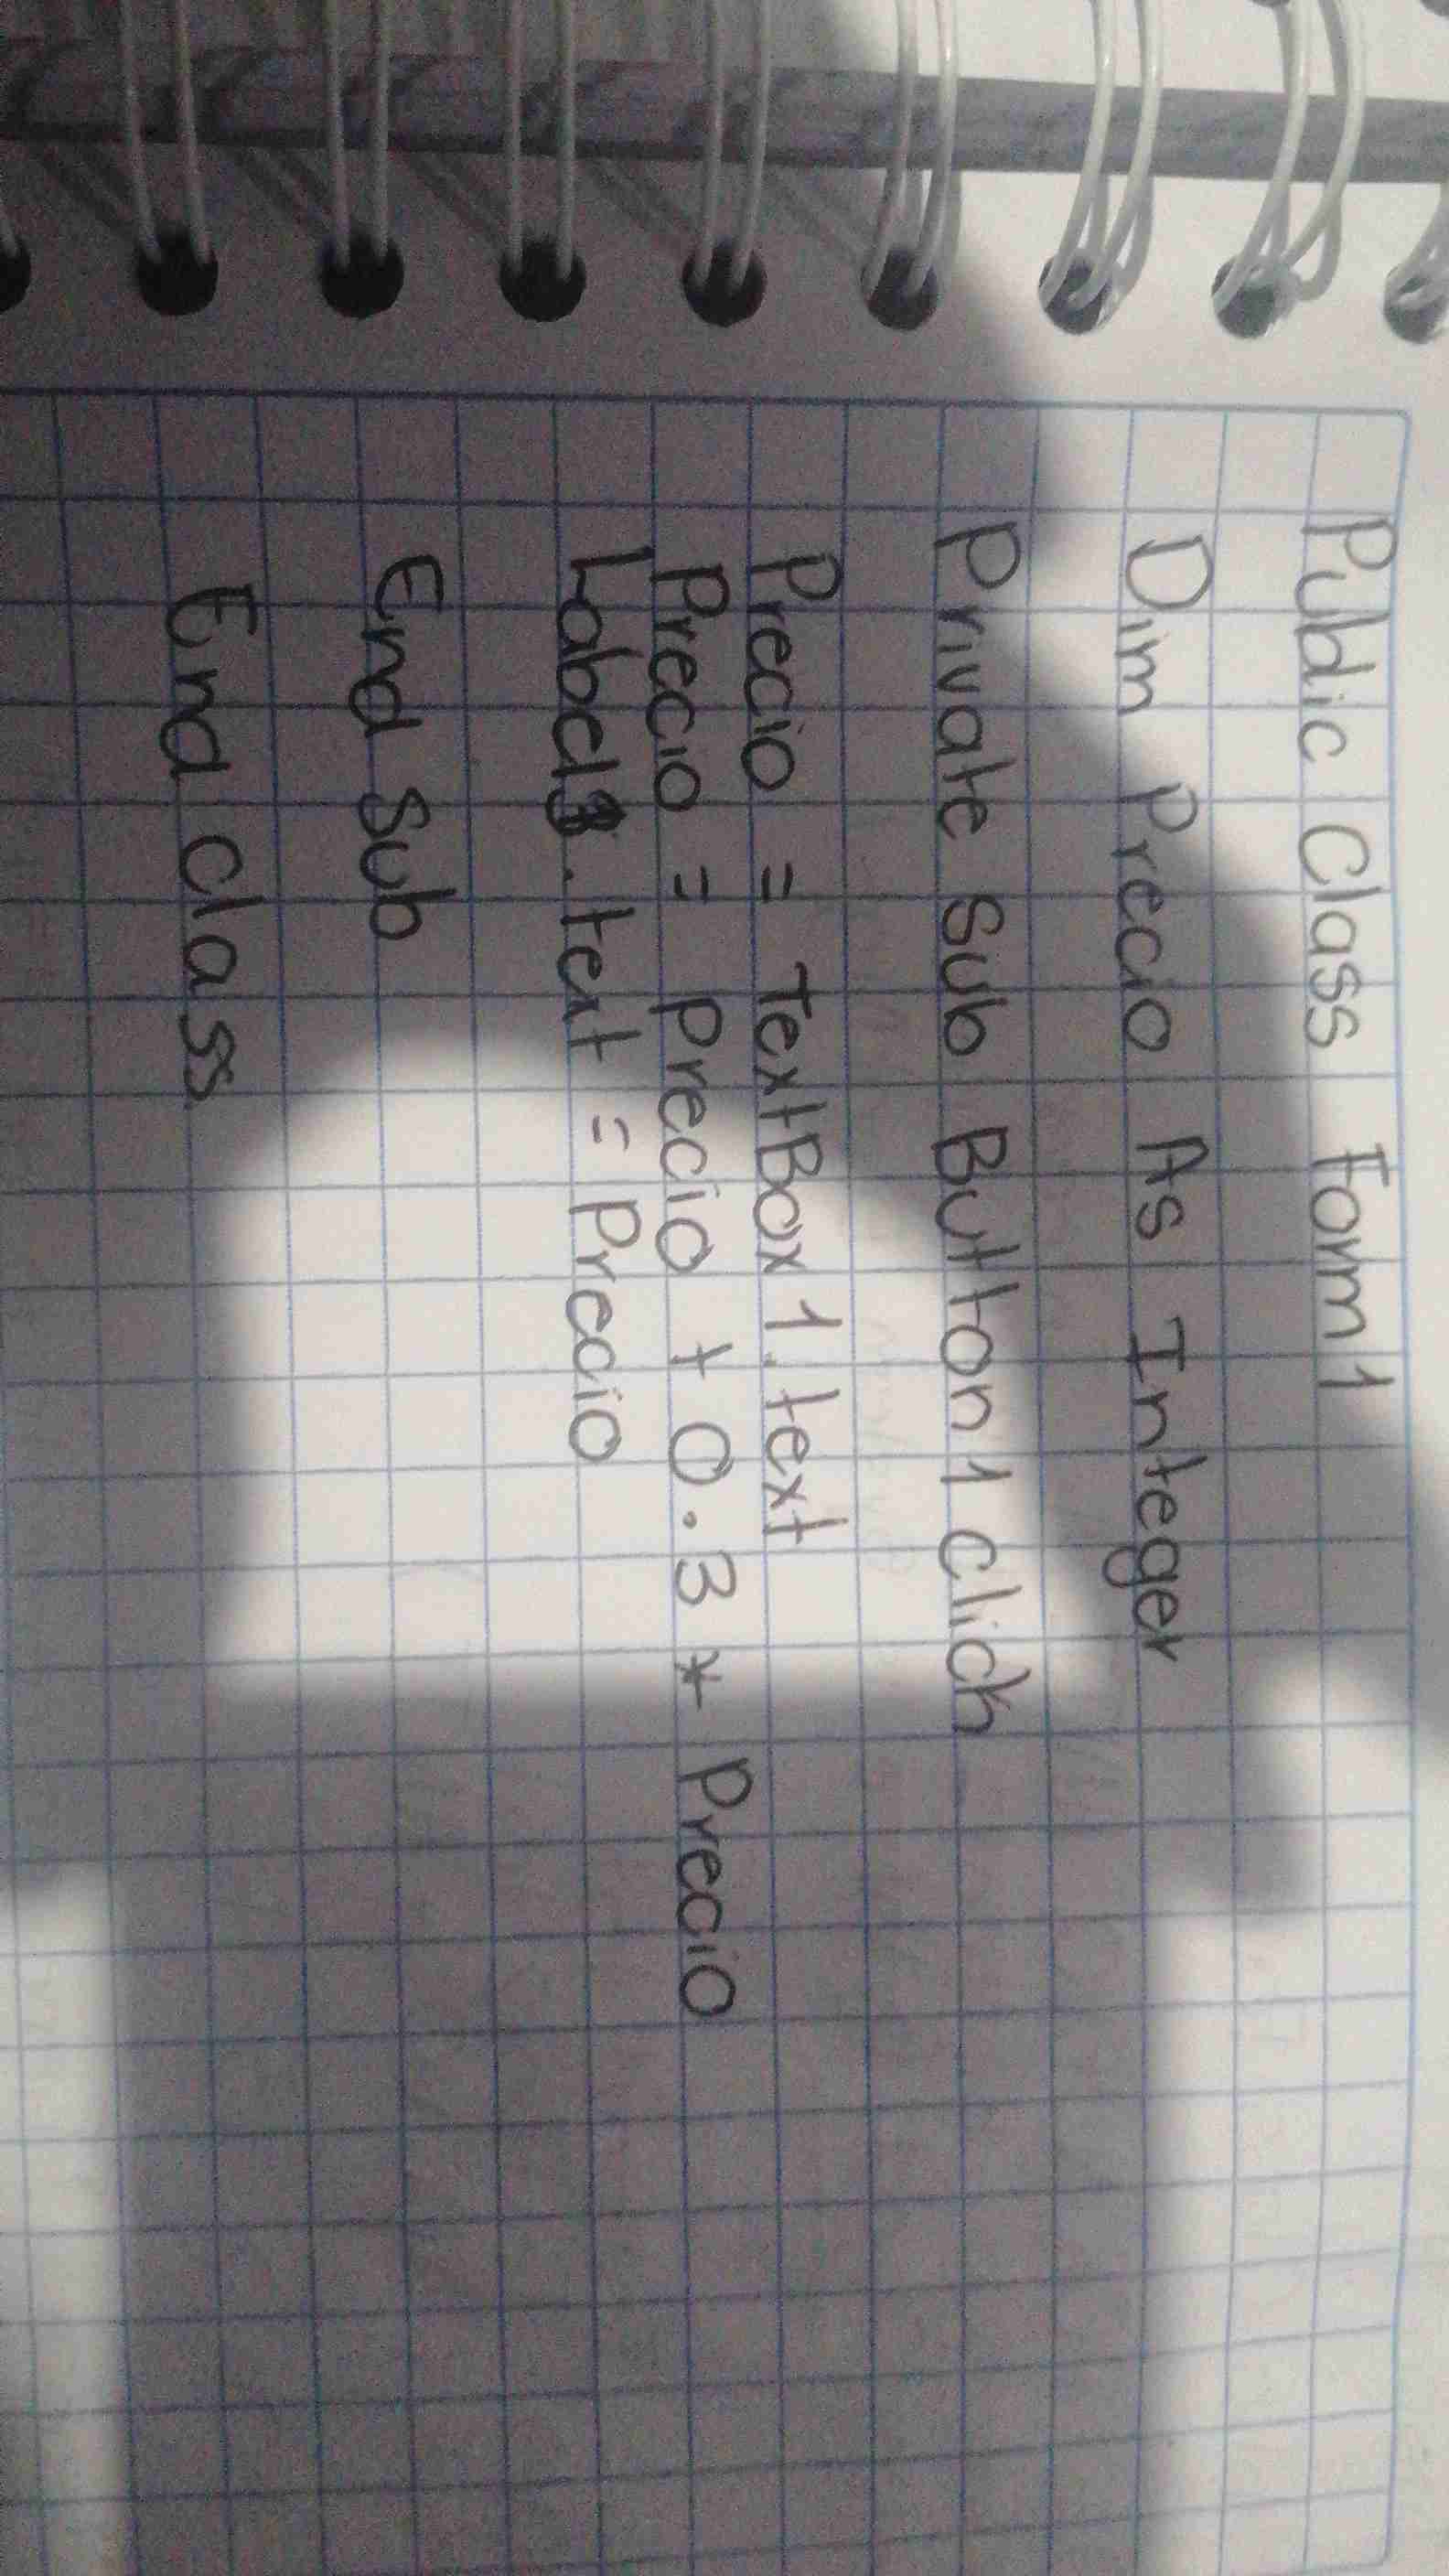 Public Class Form1
Dim Precio As Integer
Private Sub Button1 click
Precio = TextBox 1.text
Precio = Precio + 0.3 * Precio
Label3.text = Precio
End Sub
End class